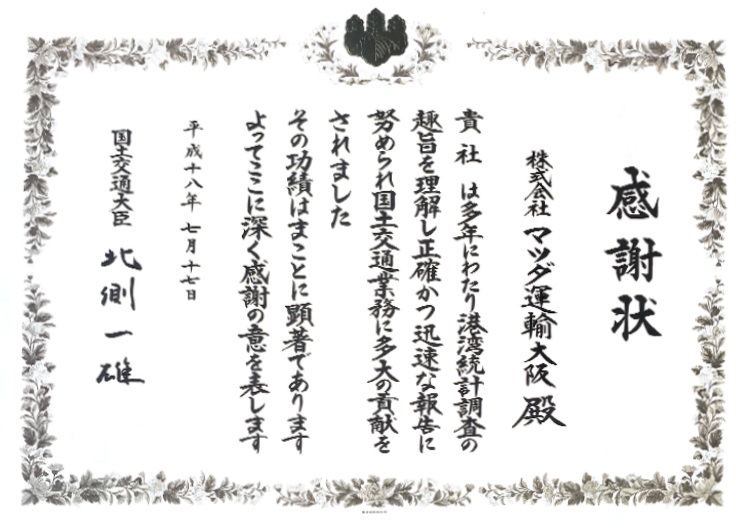 感謝状
株式会社 マツダ運輸大阪 殿
貴社 は多年にわたり港湾統計調査の
趣旨を理解し正確かつ迅速な報告に
努められ国土交通業務に多大の貢献を
されました
その功績はまことに顕著であります
よってここに深く感謝の意を表します
平成十八年 七月 十七日
国土交通大臣 北側一雄